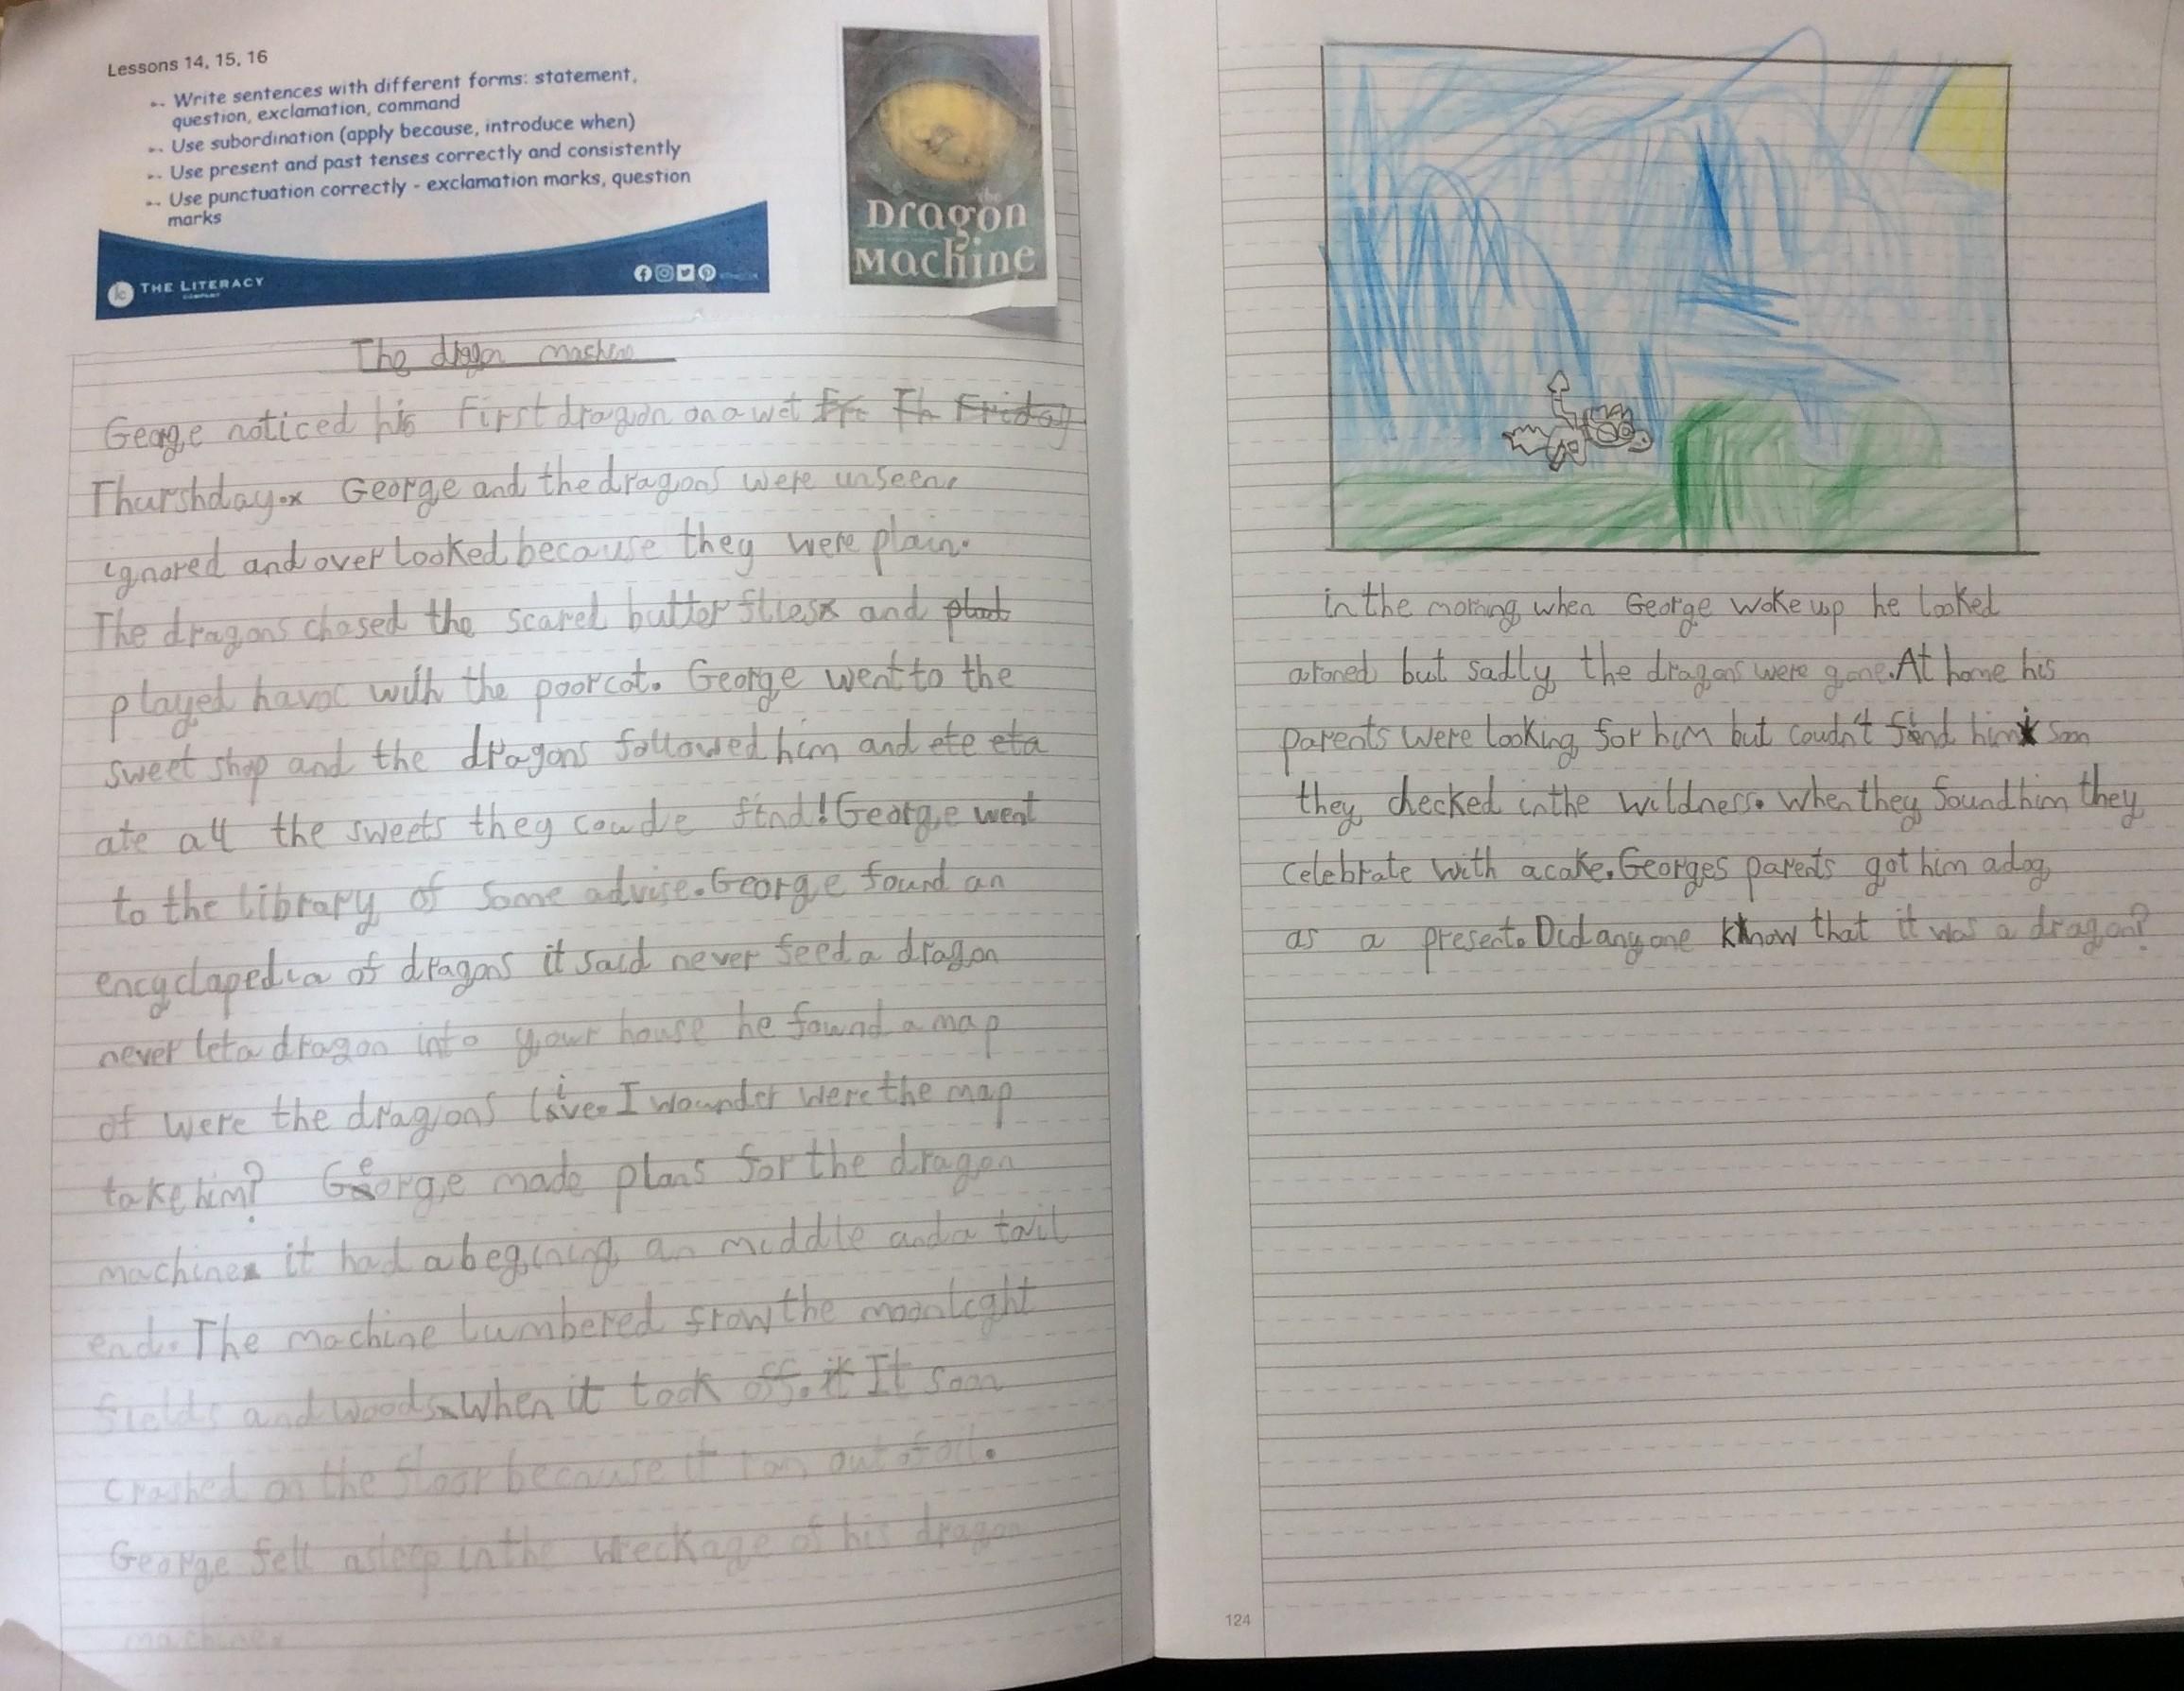 Lessons 14, 15, 16
Write sentences with different forms: statement,
question, exclamation, command
Use subordination (apply because, introduce when)
Use present and past tenses correctly and consistently
Use punctuation correctly - exclamation marks, question
marks
THE LITERACY
COMPANY
the
Dragon
Machine
The dragon machine
George noticed his first dragon on a wet Fri Th Friday
Thurshday. George and the dragons were unseen,
ignored and over looked because they were plain.
The dragons chased the scared butter flies and
played havoc with the poor cat. George went to the
sweet shop and the dragons followed him and ete eta
ate all the sweets they coude find! George went
to the library of some advise. George found an
encyclapedia of dragons it said never feed a dragon
never let a dragon into your house he found a map
of were the dragons live. I wounder were the map
take him? George made plans for the dragon
machine it had a begining an middle and a tail
end. The machine lumbered frow the moonlight
fields and woods when it took off. it It soon
crashed on the floor because it ran out of oil.
George fell asleep in the wreckage of his dragon
machine.
in the morning when George woke up he looked
aroned but sadly the dragons were gone. At home his
parents were looking for him but coudn't find him soon
they checked in the wildness. when they found him they
celebrate with a cake. Georges parents got him a dog
as a present. Did any one know that it was a dragon?
124